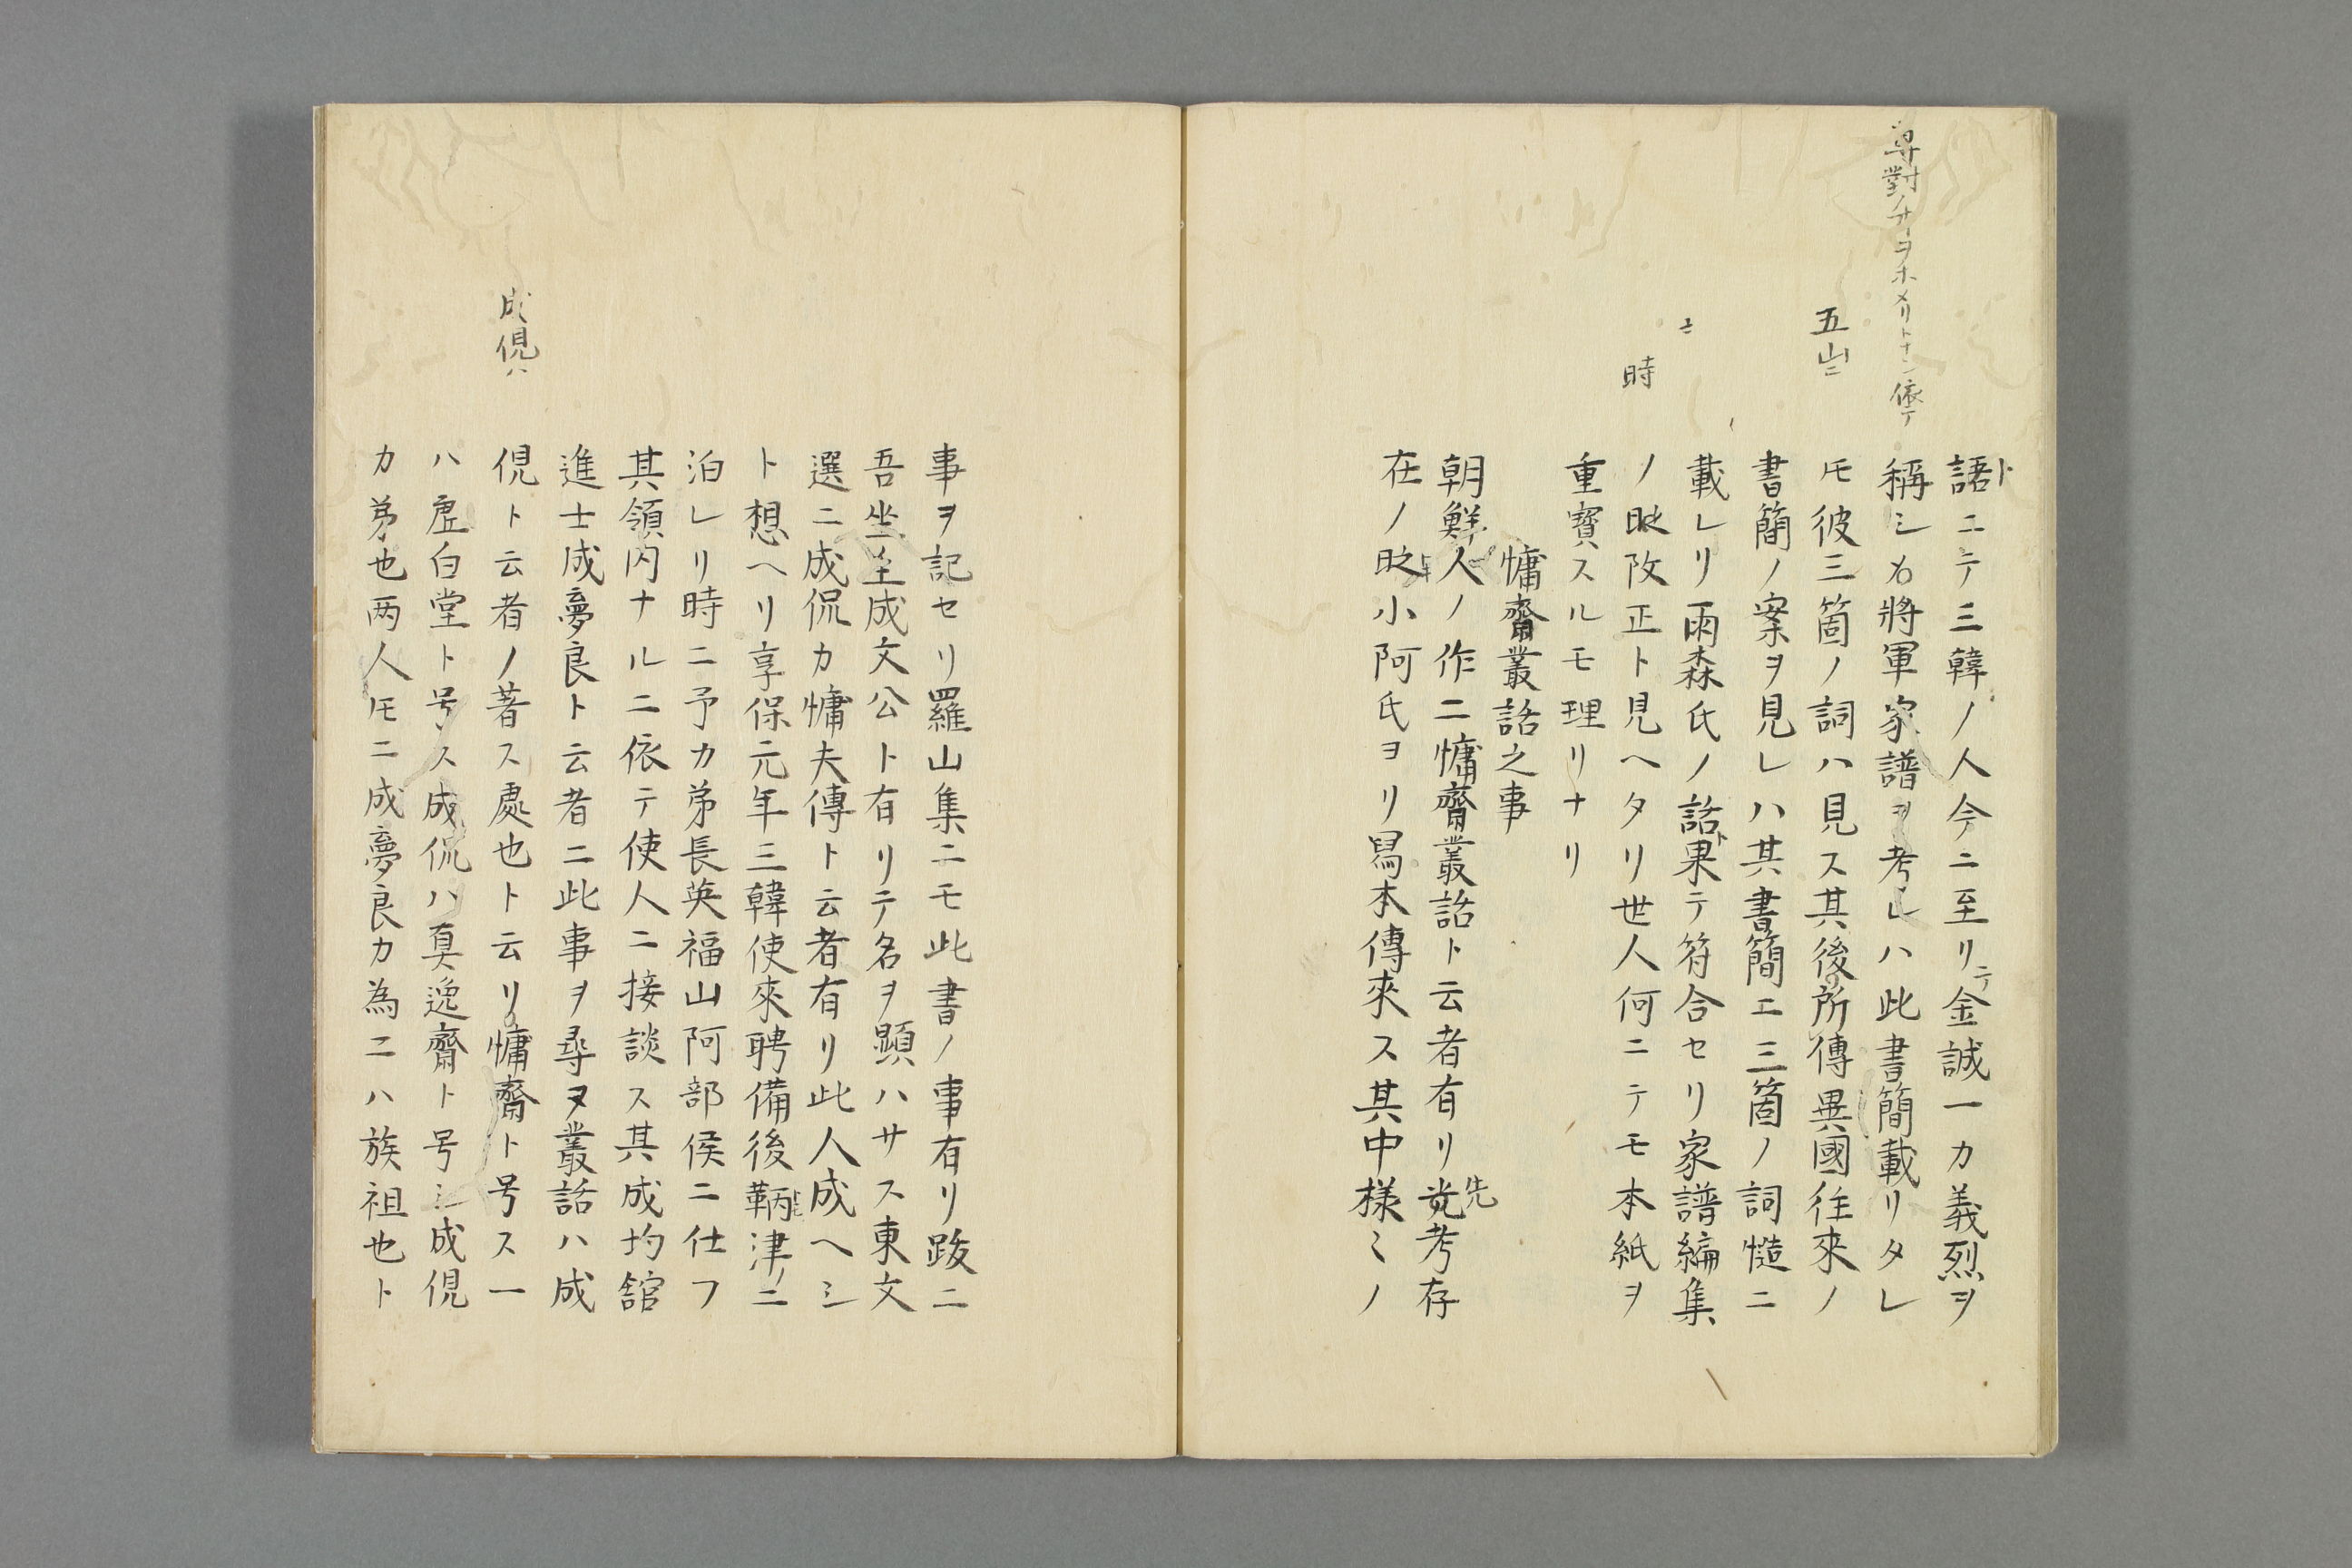 専對ノ才ヲホメリトナン依テ
五山ニ
ニ
時
語ニテ三韓ノ人今ニ至リテ金誠一カ義烈ヲ
稱シヌ將軍家譜ヲ考レハ此書簡載リタレ
𪜈彼三箇ノ詞ハ見ス其後所傳異國往來ノ
書簡ノ案ヲ見レハ其書簡エ三箇ノ詞慥ニ
載レリ雨森氏ノ話ト果テ符合セリ家譜編集
ノ改正ト見ヘタリ世人何ニテモ本紙ヲ
重寳スルモ理リナリ
慵齋叢話之事
朝鮮人ノ作ニ慵齋叢話ト云者有リ先考存
在ノ小阿氏ヨリ寫本傳來ス其中様〻ノ
事ヲ記セリ羅山集ニモ此書ノ事有リ跋ニ
吾坐主成文公ト有リテ名ヲ顯ハサス東文
選ニ成侃カ慵夫傳ト云者有リ此人成ヘシ
ト想ヘリ享保元年三韓使來聘備後鞆津ニ
泊レリ時ニ予カ弟長英福山阿部侯ニ仕フ
其領内ナルニ依テ使人ニ接談ス其成均舘
進士成夢良ト云者ニ此事ヲ尋ヌ叢話ハ成
俔ト云者ノ著ス處也ト云リ慵齋ト号ス一
成俔ハ
ハ虚白堂ト号ス成侃ハ眞逸齋ト号シ成俔
カ弟也两人𪜈ニ成夢良カ為ニハ族祖也ト